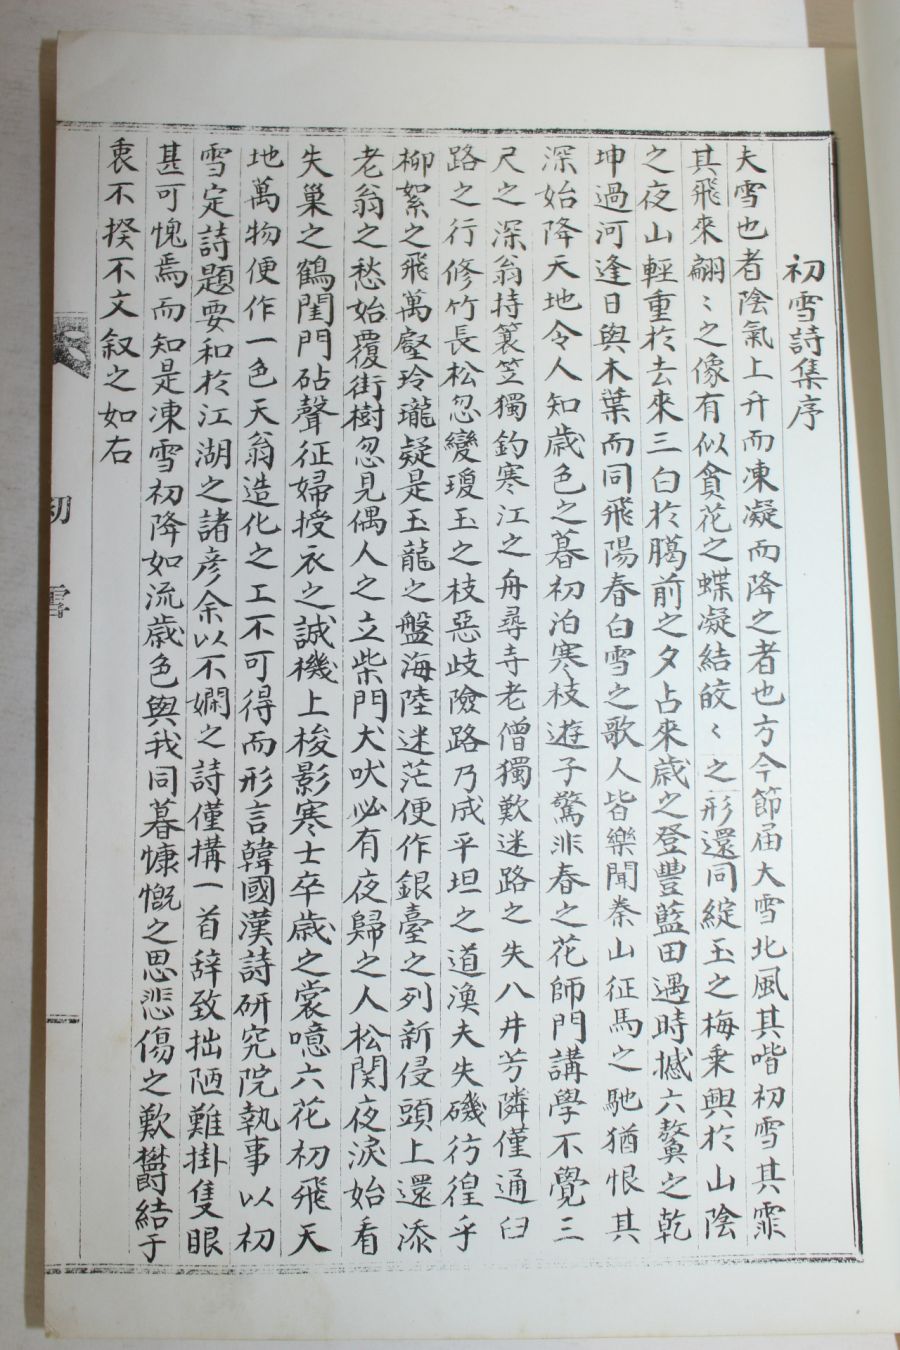 初雪詩集序
夫雪也者陰氣上升而凍凝而降之者也方今節届大雪北風其喈初雪其霏
其飛來翩〻之像有似貪花之蝶凝結皎〻之形還同綻玉之梅乘興於山陰
之夜山輕重於去來三白於臈前之夕占來歲之登豐藍田遇時撼六鰲之乾
坤過河逢日與木葉而同飛陽春白雪之歌人皆樂聞秦山征馬之馳猶恨其
深始降天地令人知歲色之暮初泊寒枝遊子驚非春之花師門講學不覺三
尺之深翁持蓑笠獨釣寒江之舟尋寺老僧獨歎迷路之失八井芳隣僅通臼
路之行修竹長松忽變瓊玉之枝惡歧險路乃成平坦之道漁夫失磯彷徨乎
柳絮之飛萬壑玲瓏疑是玉龍之盤海陸迷茫便作銀臺之列新侵頭上還添
老翁之愁始覆街樹忽見偶人之立柴門犬吠必有夜歸之人松関夜淚始看
失巢之鶴閨門砧聲征婦授衣之誠機上梭影寒士卒歲之裳噫六花初飛天
地萬物便作一色天翁造化之工不可得而形言韓國漢詩研究院執事以初
雪定詩題要和於江湖之諸彦余以不嫻之詩僅搆一首辞致拙陋難掛隻眼
甚可愧焉而知是凍雪初降如流歲色與我同暮慷慨之思悲傷之歎欝結于
衷不揆不文叙之如右
初雪